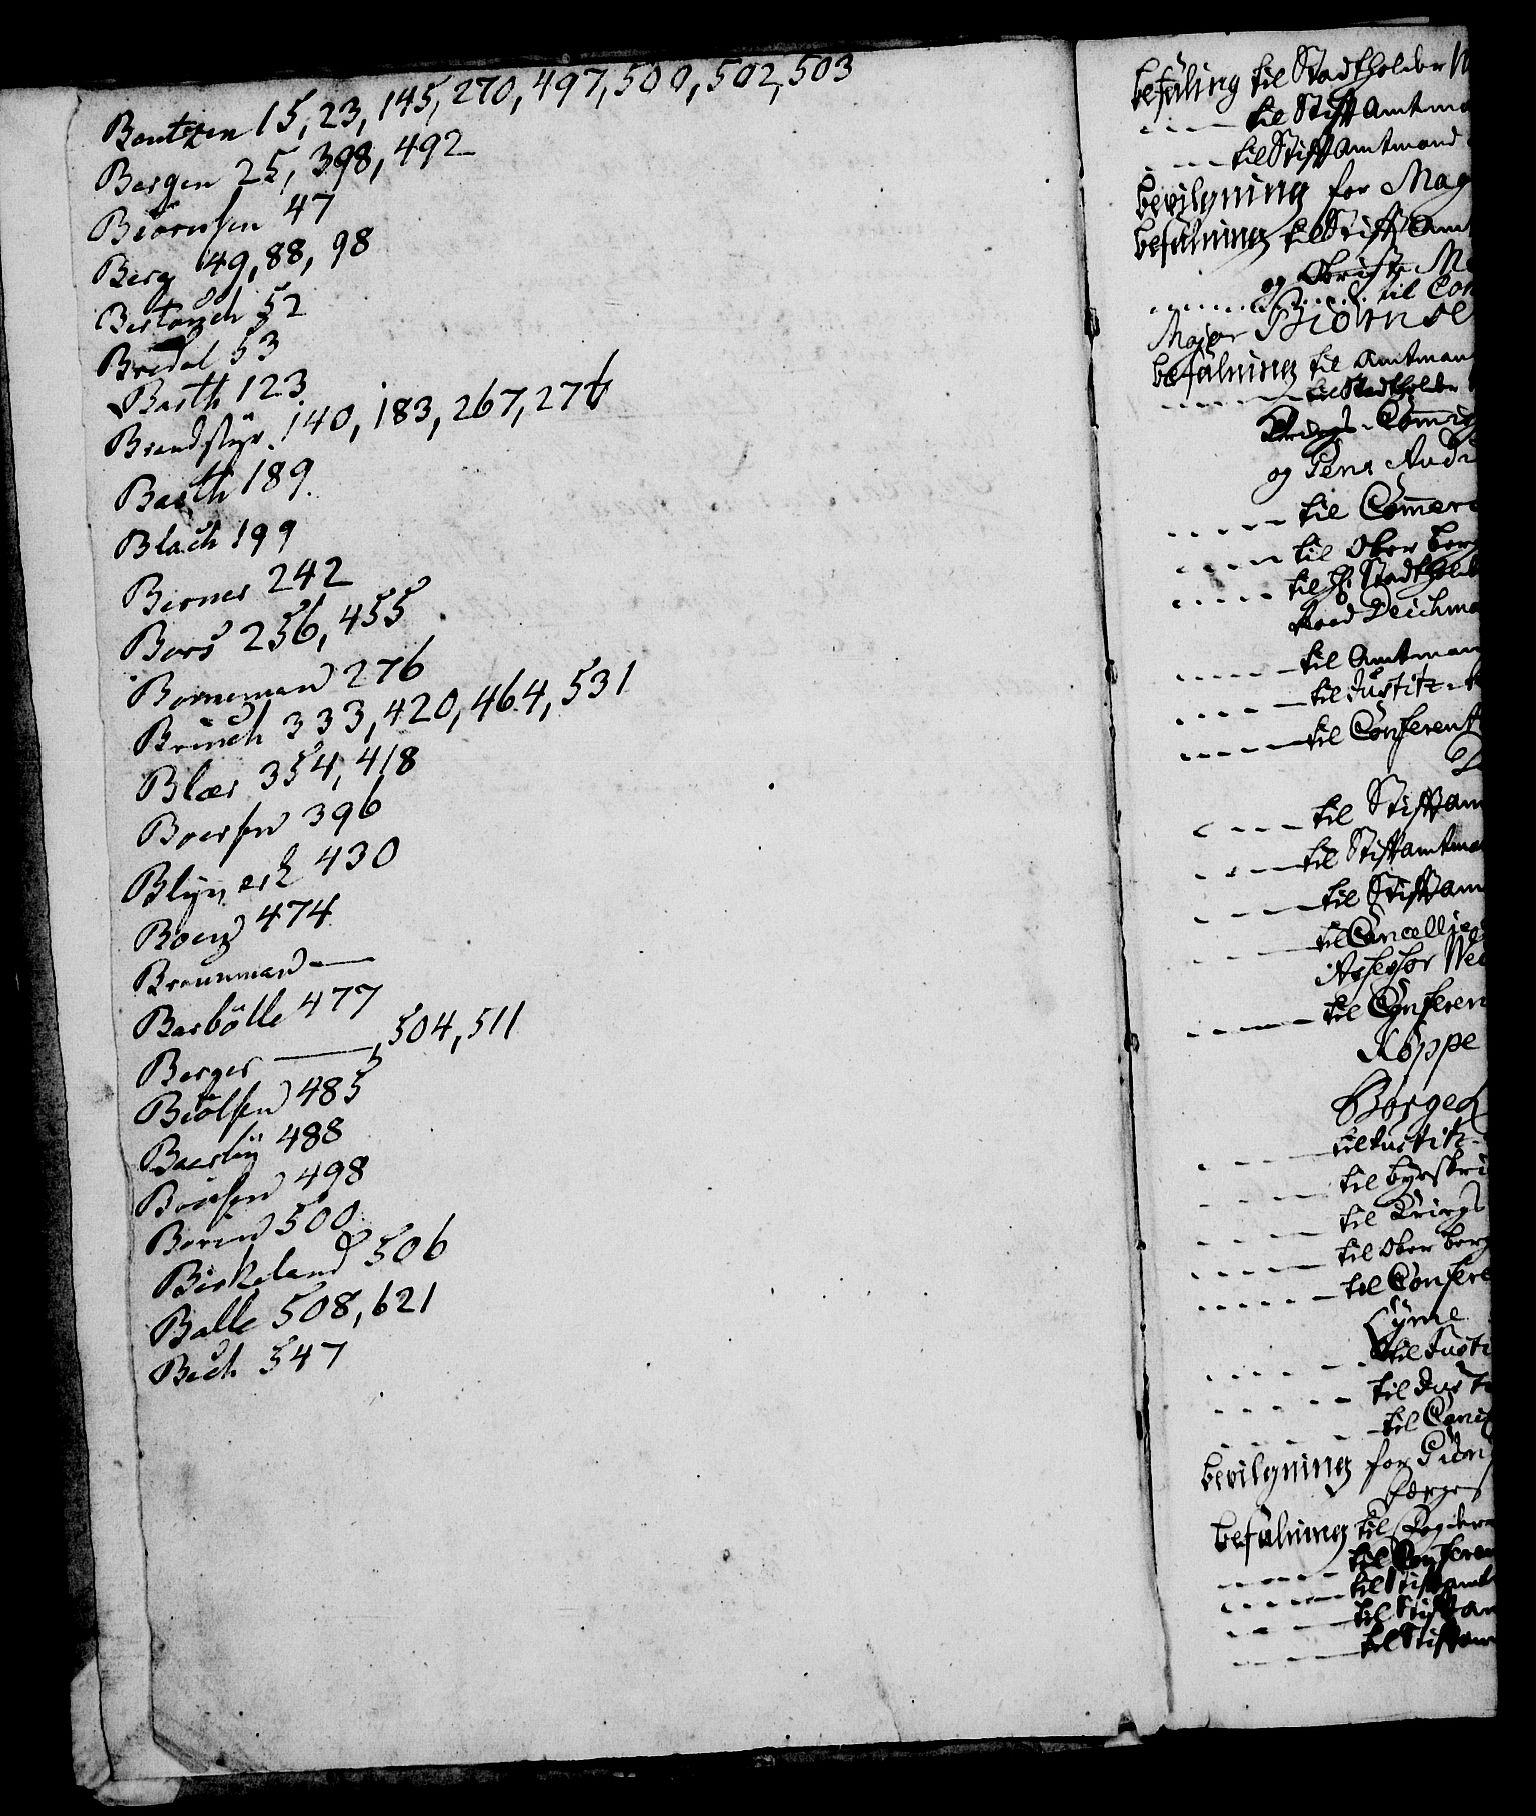 Bentzen 15, 23, 145, 270, 497, 500, 502, 503
Bergen 25, 398, 492
Biörnsen 47
Berg 49, 88, 98
Bertouch 52
Bredal 53
Barth 123
140, 183, 267, 276
Barth 189
Blach 199
Berner 242
Bors 256, 455
Bornemand 276
Bruuch 333, 420, 464, 531
Blær 354, 418
Boersen 396
430
474
Braunmand —
Barbölle 477
Berger — 504, 511
Biölsen 485
Baerbÿ 488
Boisen 498
500
Birkeland 506
Balle 508, 621
Bech 547
befaling til Stadtholder
---- til Stift Amtm
---- til Stift Amtmand
bevilgning for Mag
befalning til Stift Amt
og Obrist
---- til Com
Major Biörnse
befalning til Amtman
---- til Stadtholder
Krigs-Commis
og Gen: Audi
---- til Commer
---- til Ober berg
---- til H. Stadthold
Raad Deichma
---- til Amtman
---- til Justitz-
---- til Conferent
---- til Stiftam
---- til Stiftamtma
---- til Stiftam
---- til Cancellie
Assessor
---- til Conferen
Röppe
---- til Justitz-
---- til byeskri
---- til Krigs
---- til Ober berg
---- til Confere
Lyme
---- til Justi
---- til Justi
---- til
bevilgning for
befalning til
---- til Conferen
---- til Stiftamt
---- til Stiftam
---- til Stiftam